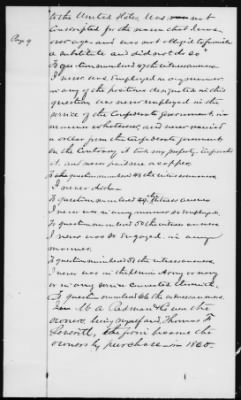 Page 9
to the United States. Was not
Conscripted for the reason that I was
over age and was not obliged to furnish
a substitute and did not do so
To question numbered 47 the witness answers
I never was employed in any manner
in any of the positions designated in this
question, was never employed in the
service of the Confederate government in
manner whatsoever, and never received
a order from the Confederate government
on the contrary it took my property, impressed
it, and never paid me a copper.
To the question numbered 48 the witness answers
I never did
To question numbered 49 the witness answers
I never was in any manner so employed.
To question numbered 50 the witness answers
I never was so engaged in any
manner.
To question numbered 51 the witness answers
I never was in the Union Army or navy
or in any service connected therewith.
To question numbered the witness answers.
M A Parham & Co was the
owners, being myself and Thomas
the firm became the
owners by purchase in 1860.